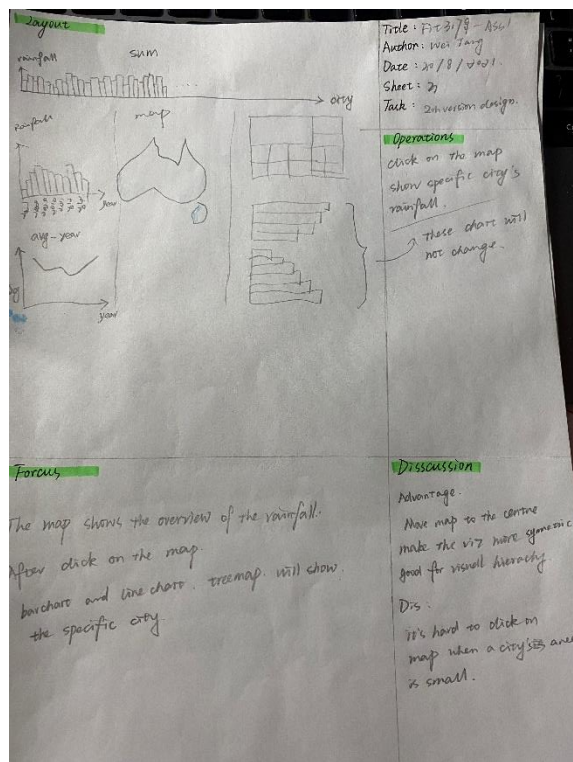 Layout
sum
rainfall
city
Rainfall
map
year
avg-year
year
Title: Fit31
Author: Wei Tang
Date: 20/8/2021.
Sheet:
Task: 2th version design.
Operations
click on the map
show specific city's
rainfall.
these chart will
not change.
Forcus
The map shows the overview of the rainfall.
After click on the map.
barchart and line chart. treemap. will show.
the specific city
Disscussion
Advantage.
Move map to the centre
make the viz more symetric
good for visuall hierachy.
Dis.
it's hard to click on
map when a city's area
is small.